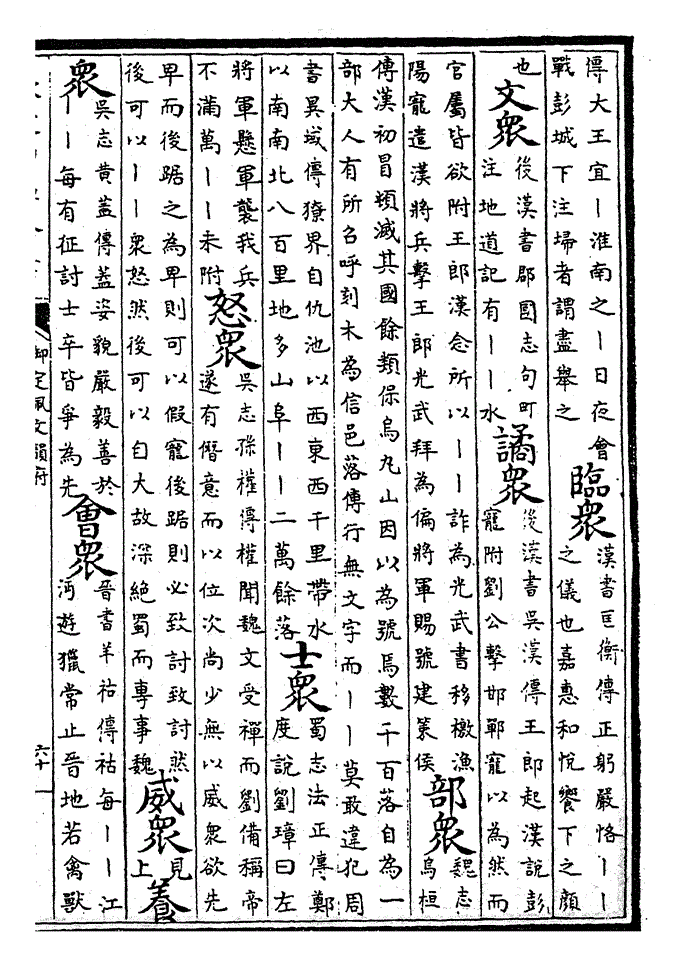 傳大王宜丨淮南之丨日夜會
戰彭城下注埽者謂盡舉之
臨衆
漢書匡衡傳正躬嚴恪丨丨
之儀也嘉惠和悅饗下之顔
也
文衆
後漢書郡國志句町
注地道記有丨丨水
譎衆
後漢書吳漢傳王郎起漢說彭
寵附劉公擊邯鄲寵以為然而
官屬皆欲附王郎漢念所以丨丨詐為光武書移檄漁
陽寵遣漢將兵擊王郎光武拜為偏將軍賜號建策侯
部衆
魏志
烏桓
傳漢初冒頓滅其國餘類保烏丸山因以為號焉數千百落自為一
部大人有所召呼刻木為信邑落傳行無文字而丨丨莫敢違犯周
書異域傳獠界自仇池以西東西千里帶水
以南南北八百里地多山阜丨丨二萬餘落
士衆
蜀志法正傳鄭
度說劉璋曰左
將軍懸軍襲我兵
不滿萬丨丨未附
怒衆
吳志孫權傳權聞魏文受禪而劉備稱帝
遂有僭意而以位次尚少無以威衆欲先
卑而後踞之為卑則可以假寵後踞則必致討致討然
後可以丨丨衆怒然後可以自大故深絕蜀而專事魏
威衆
見
上
養
衆
吳志黃蓋傳蓋姿貌嚴毅善於
丨丨每有征討士卒皆爭為先
會衆
晉書羊祜傳祜每丨丨江
沔遊獵常止晉地若禽獸
御定佩文韻府